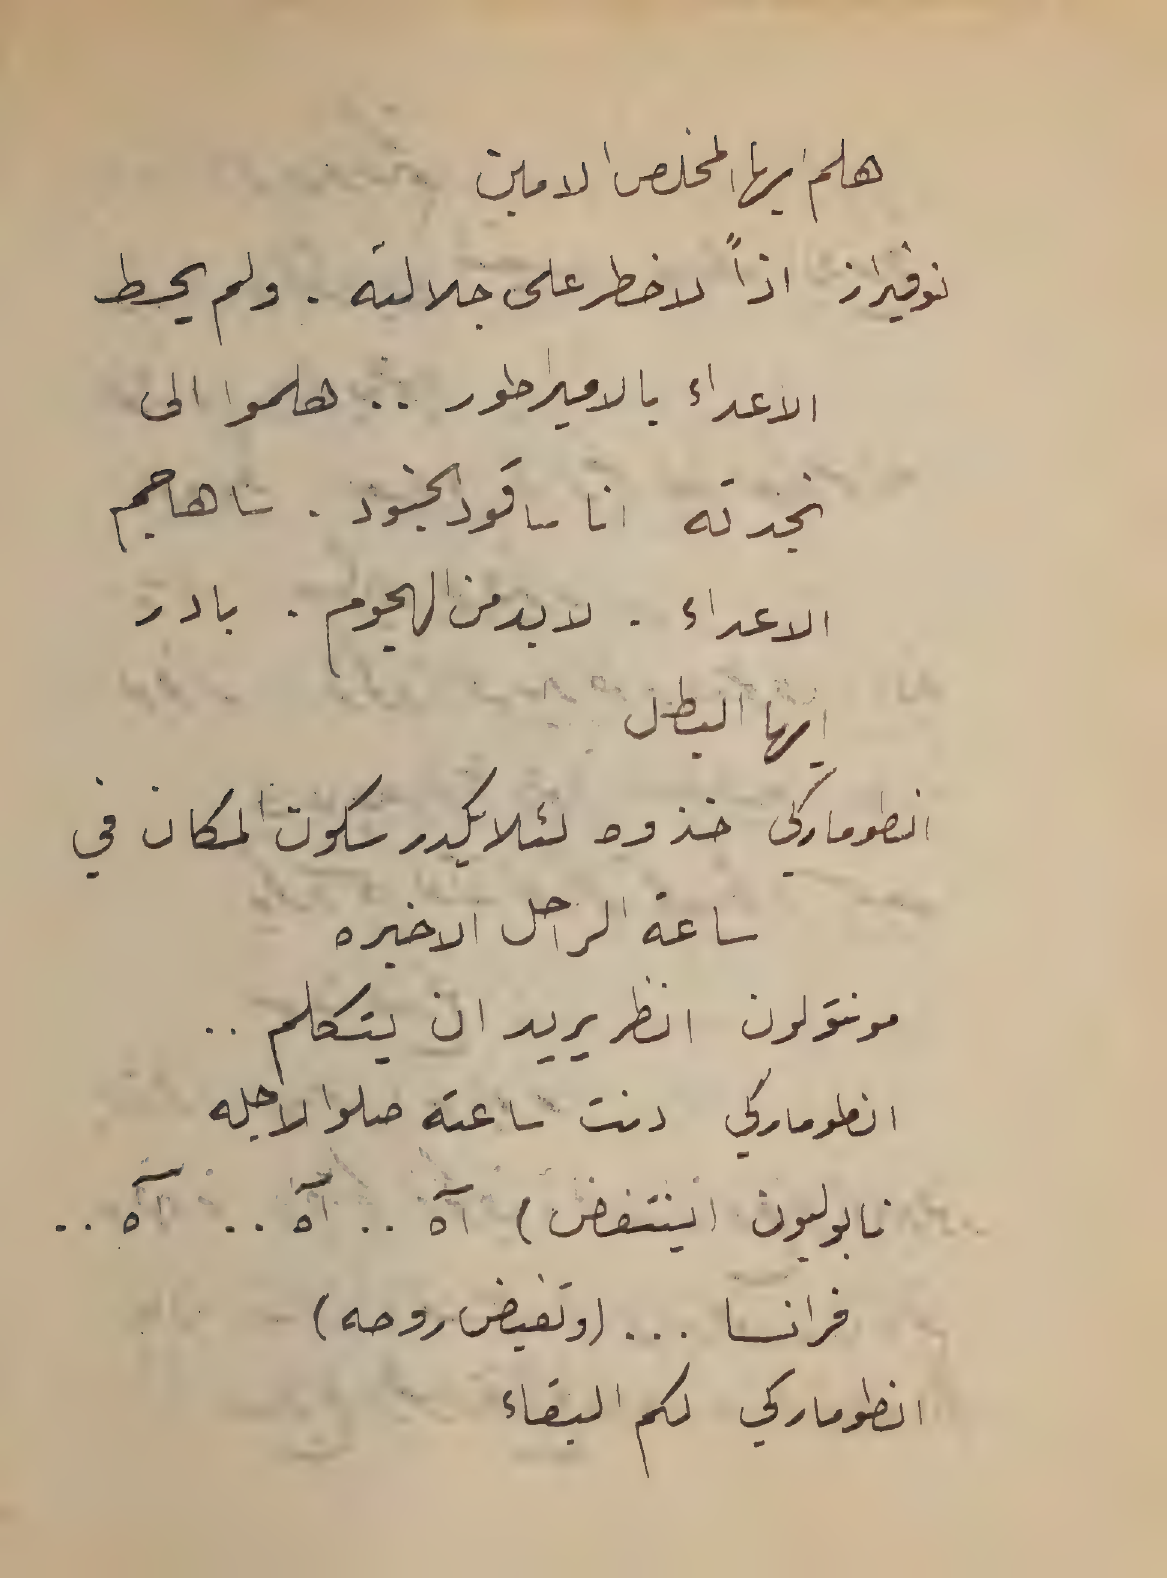 هلم ايها المخلص الامين
نوفيراز اذاً لا خطر على جلالته . ولم يحط
الاعداء بالامبراطور .. هلموا الى
نجدته انا ساقود الجنود . سأهاجم
الاعداء . لا بد من الهجوم . بادر
ايها البطل
انطوماركي خذوه لئلا يكدر سكون المكان في
ساعة الراحل الاخيره
مونتولون انظر يريد ان يتكلم ..
انطوماركي دنت ساعته صلوا لاجله
نابوليون (ينتفض) آه .. آه .. آه ..
فرانسا ... (وتفيض روحه)
انطوماركي لكم البقاء